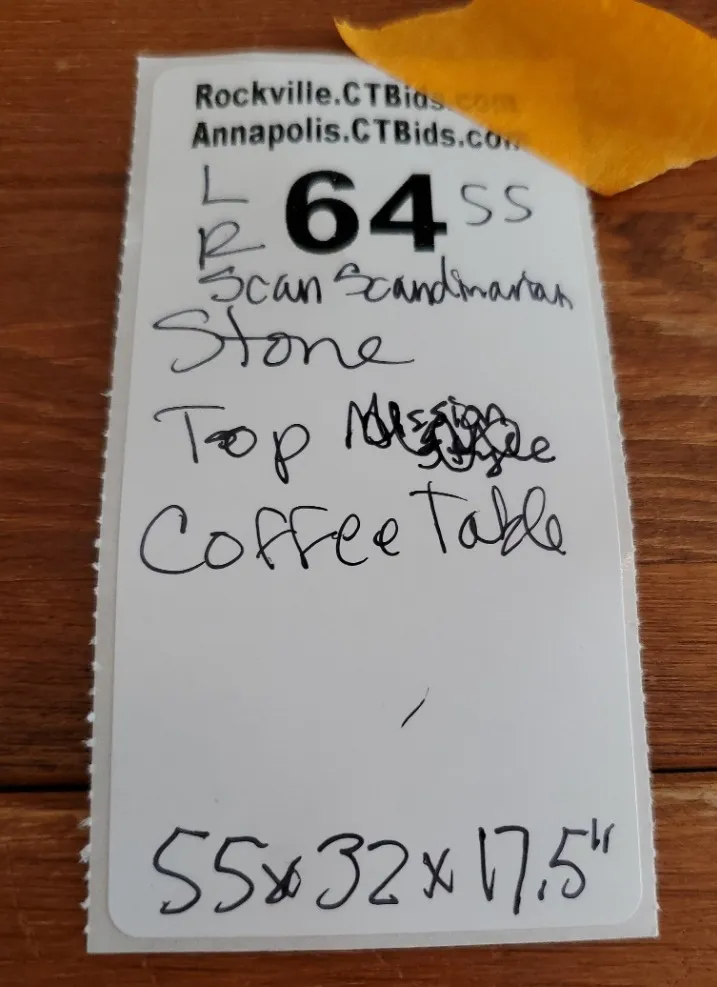 Rockville.CTBids.com
Annapolis.CTBids.com
L R 64 SS
Scan Scandinavian
Stone
Top Mission Style
Coffee Table
55x32x17.5"